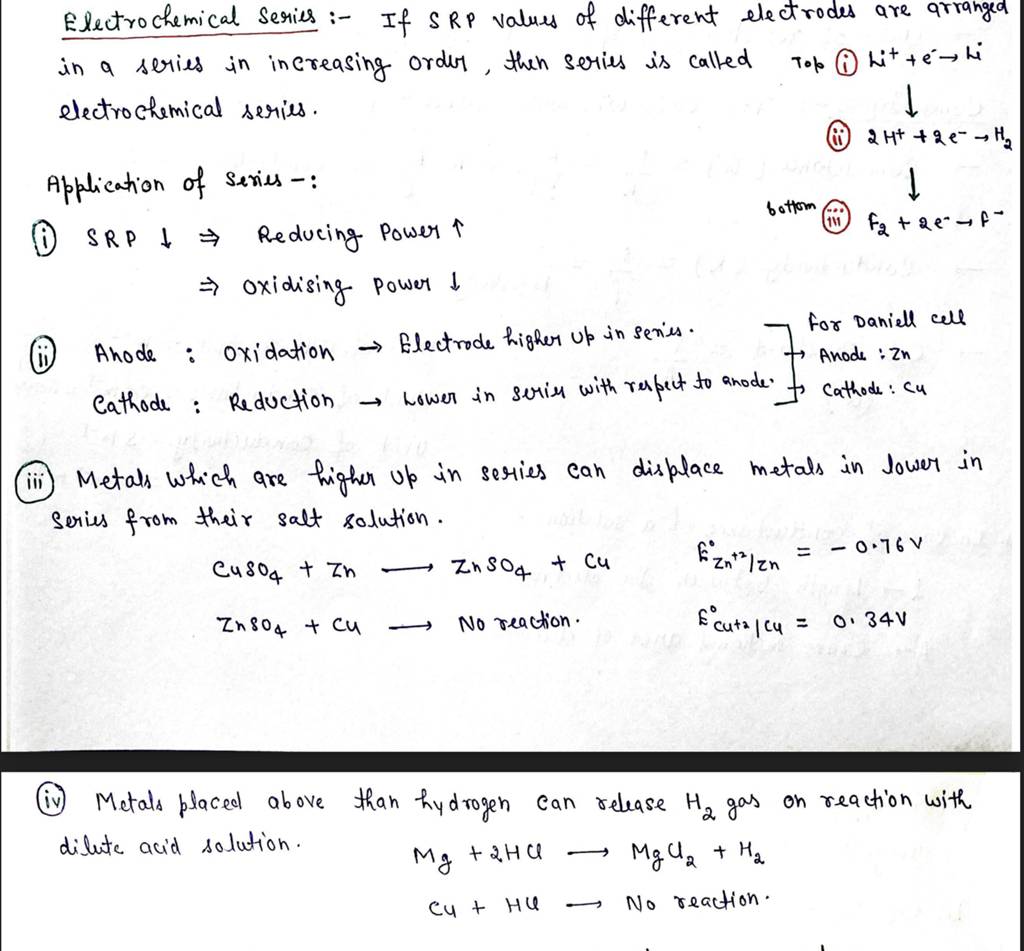 Electrochemical Series :- If SRP values of different electrodes are arranged
in a series in increasing order, then series is called
electrochemical series.
Top (i) Li⁺ + e⁻ → Li
↓
(ii) 2H⁺ + 2e⁻ → H₂
↓
bottom (iii) F₂ + 2e⁻ → F⁻
Application of Series -:
(i) SRP ↓ ⇒ Reducing Power ↑
⇒ oxidising power ↓
(ii) Anode : oxidation → Electrode higher up in series.
Cathode : Reduction → Lower in series with respect to anode.
for Daniell cell
→ Anode : Zn
→ Cathode : Cu
(iii) Metals which are higher up in series can displace metals in lower in
series from their salt solution.
CuSO₄ + Zn ⟶ ZnSO₄ + Cu E°Zn⁺²/Zn = - 0.76 V
ZnSO₄ + Cu ⟶ No reaction. E°Cu+2/Cu = 0.34V
(iv) Metals placed above than hydrogen can release H₂ gas on reaction with
dilute acid solution.
Mg + 2HCl ⟶ MgCl₂ + H₂
Cu + HCl ⟶ No reaction.